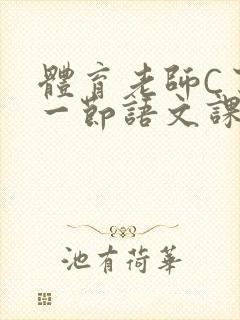 體育老師C
一節語文課
池有荷華